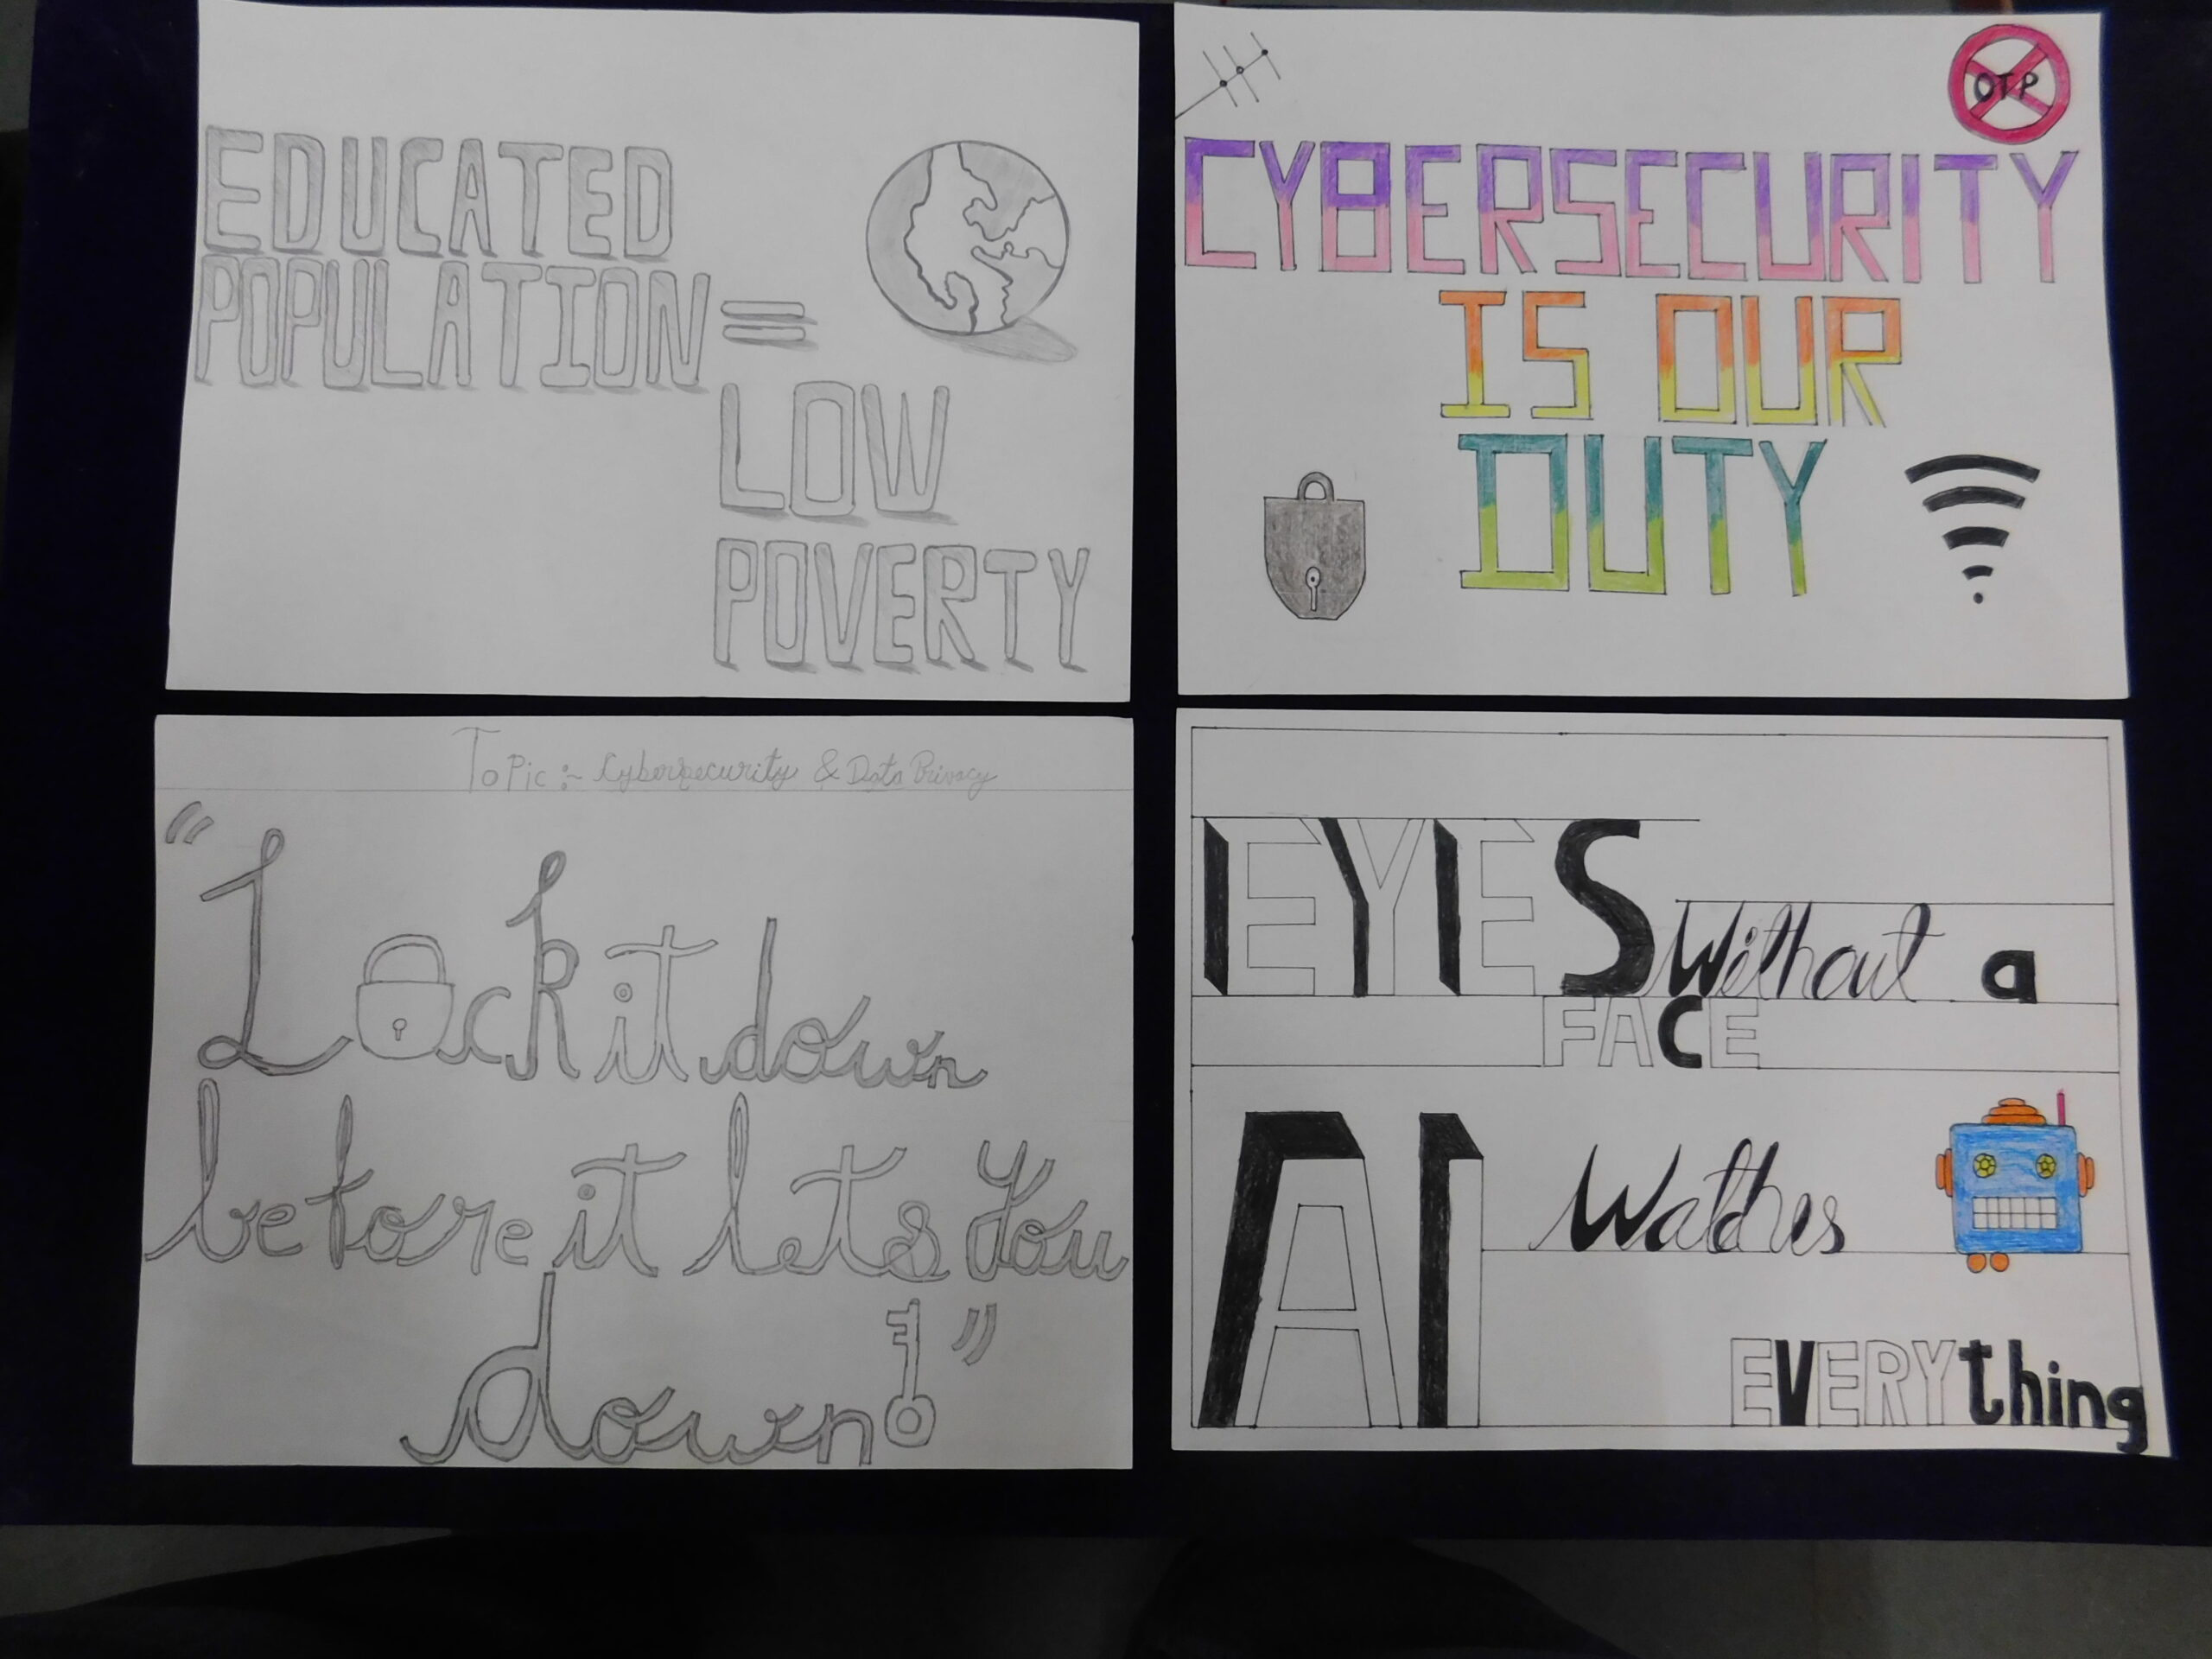 EDUCATED
POPULATION =
LOW
POVERTY
OTP
CYBERSECURITY
IS OUR
DUTY
Topic :- Cybersecurity & Data Privacy
"Lock it down
before it lets you
down!"
EYES Without a
FACE
AI Watches
EVERYthing